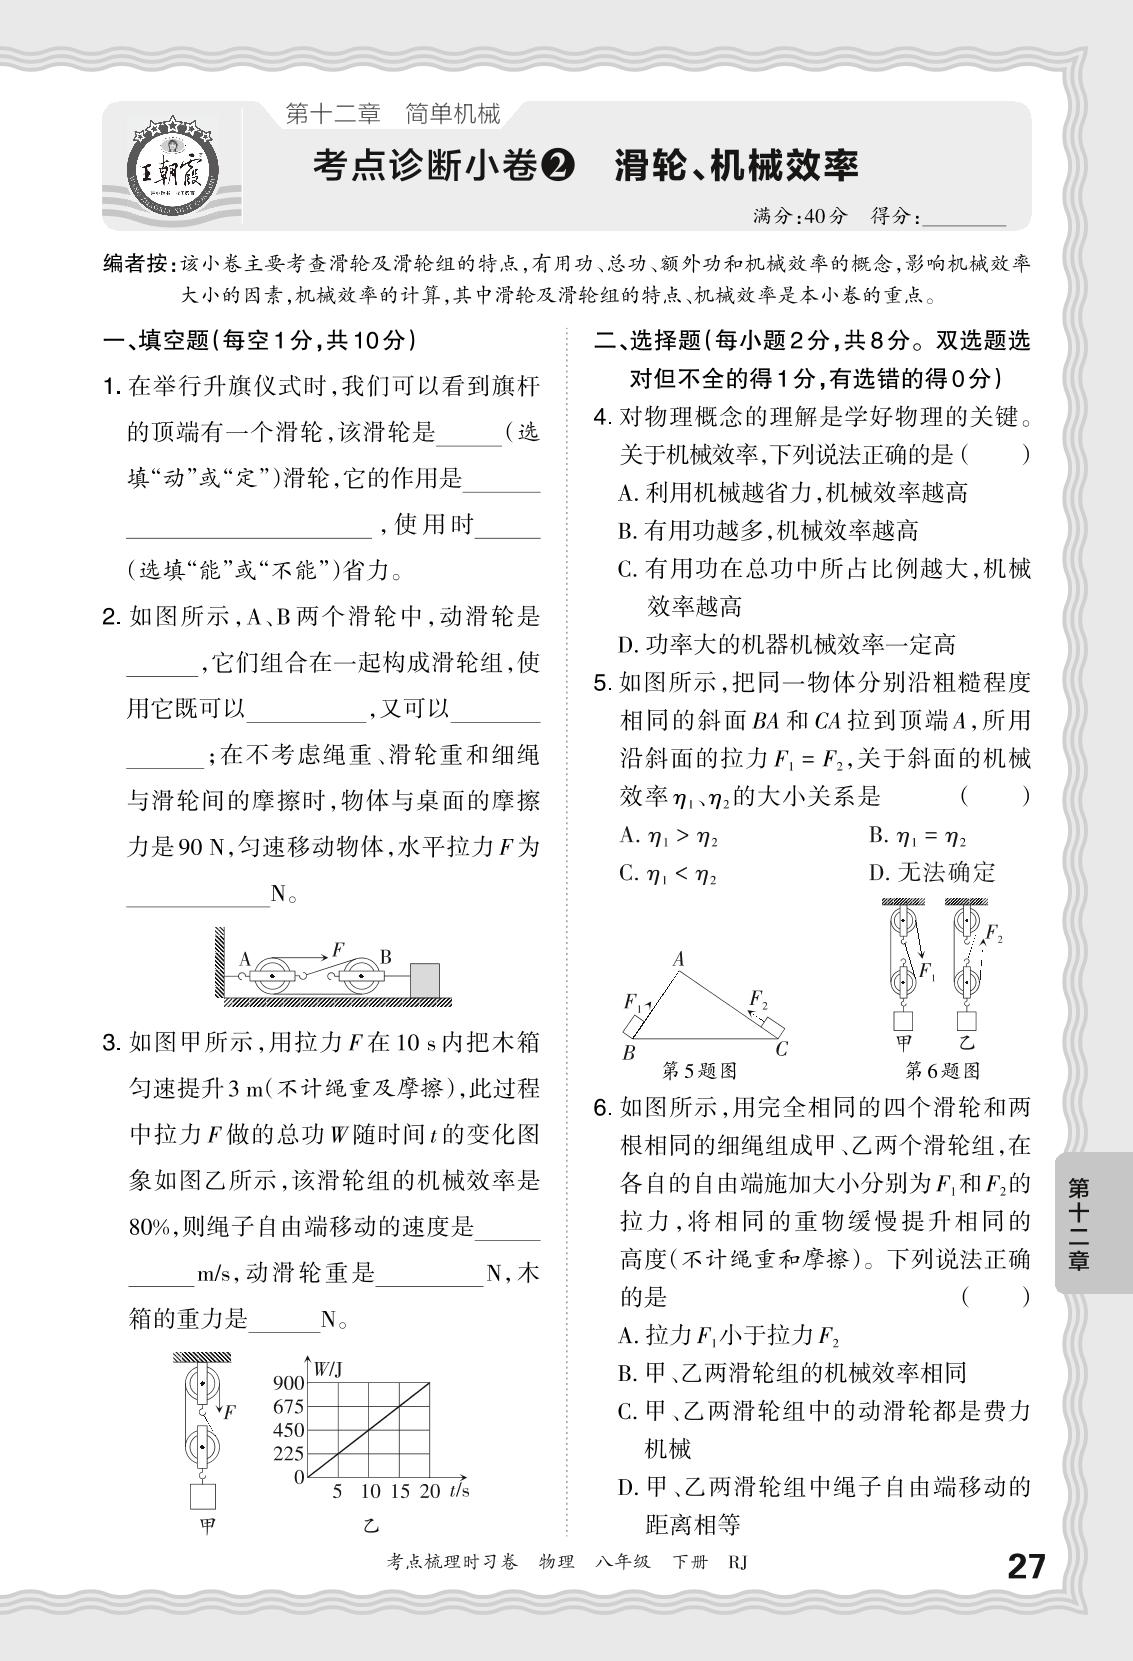 第十二章　简单机械
考点诊断小卷❷　滑轮、机械效率
满分:40分　得分:________
王朝霞
编者按:该小卷主要考查滑轮及滑轮组的特点,有用功、总功、额外功和机械效率的概念,影响机械效率
大小的因素,机械效率的计算,其中滑轮及滑轮组的特点、机械效率是本小卷的重点。
一、填空题(每空1分,共10分)
1. 在举行升旗仪式时,我们可以看到旗杆
的顶端有一个滑轮,该滑轮是______(选
填“动”或“定”)滑轮,它的作用是______
______________________,使用时______
(选填“能”或“不能”)省力。
2. 如图所示,A、B两个滑轮中,动滑轮是
______,它们组合在一起构成滑轮组,使
用它既可以__________,又可以________
______;在不考虑绳重、滑轮重和细绳
与滑轮间的摩擦时,物体与桌面的摩擦
力是90 N,匀速移动物体,水平拉力F为
____________N。
A F B
3. 如图甲所示,用拉力F在10 s内把木箱
匀速提升3 m(不计绳重及摩擦),此过程
中拉力F做的总功W随时间t的变化图
象如图乙所示,该滑轮组的机械效率是
80%,则绳子自由端移动的速度是______
______m/s,动滑轮重是__________N,木
箱的重力是______N。
F
甲
W/J
900
675
450
225
0
5 10 15 20 t/s
乙
二、选择题(每小题2分,共8分。双选题选
对但不全的得1分,有选错的得0分)
4. 对物理概念的理解是学好物理的关键。
关于机械效率,下列说法正确的是(　　)
A. 利用机械越省力,机械效率越高
B. 有用功越多,机械效率越高
C. 有用功在总功中所占比例越大,机械
效率越高
D. 功率大的机器机械效率一定高
5. 如图所示,把同一物体分别沿粗糙程度
相同的斜面BA和CA拉到顶端A,所用
沿斜面的拉力F₁ = F₂,关于斜面的机械
效率η₁、η₂的大小关系是　(　　)
A. η₁ > η₂　B. η₁ = η₂
C. η₁ < η₂　D. 无法确定
A
F₁ F₂
B C
第5题图
F₁ F₂
甲 乙
第6题图
6. 如图所示,用完全相同的四个滑轮和两
根相同的细绳组成甲、乙两个滑轮组,在
各自的自由端施加大小分别为F₁和F₂的
拉力,将相同的重物缓慢提升相同的
高度(不计绳重和摩擦)。下列说法正确
的是　(　　)
A. 拉力F₁小于拉力F₂
B. 甲、乙两滑轮组的机械效率相同
C. 甲、乙两滑轮组中的动滑轮都是费力
机械
D. 甲、乙两滑轮组中绳子自由端移动的
距离相等
第十二章
考点梳理时习卷　物理　八年级　下册　RJ
27